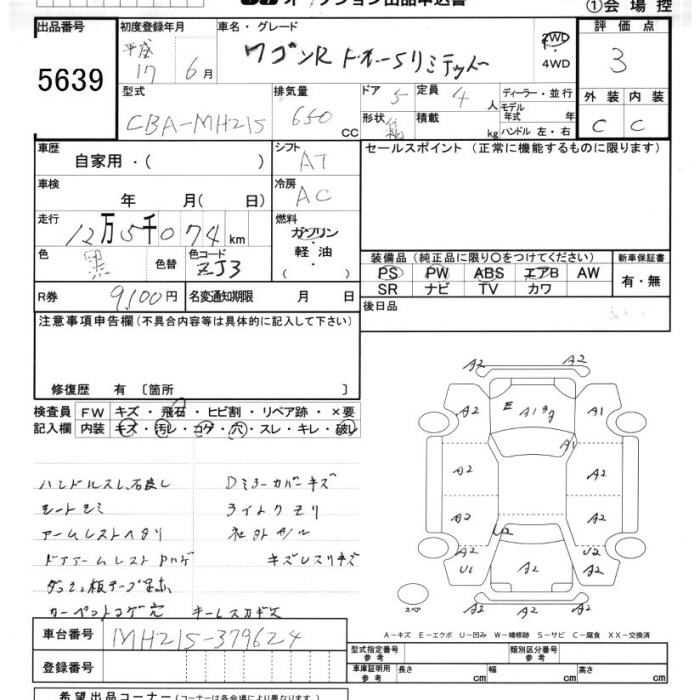 オークション出品申込書
①会場控
出品番号 5639
初度登録年月 平成17 6月
車名・グレード ワゴンR
2WD
4WD
評価点 3
型式 CBA-MH21S
排気量 650 CC
ドア 5 定員 4人
形状 積載 kg
ディーラー・並行
モデル年式 年
ハンドル 左・右
外装 内装
C C
車歴 自家用・( )
シフト AT
セールスポイント (正常に機能するものに限ります)
車検 年 月( 日)
冷房 AC
走行 12万5千074km
燃料 ガソリン
軽油
色 黒 色替 色コード ZJ3
装備品 (純正品に限り〇をつけてください)
新車保証書
PS PW ABS エアB AW
有・無
SR ナビ TV カワ
R券 9100円 名変通知期限 月 日
後日品
注意事項申告欄 (不具合内容等は具体的に記入して下さい)
修復歴 有 〔箇所 〕
検査員 FW キズ・飛石・ヒビ割・リペア跡・×要
記入欄 内装 キズ・汚レ・コゲ・穴・スレ・キレ・破レ
ハンドルスレ、石良し
Dミラーカバーキズ
シートシミ
ライトクモリ
アームレストヘタリ
社外
ドアアームレストハゲ
キズレスリキズ
カーペットコゲ穴
キーレスカギ欠
A2 A2
A2 E A1 A1
A1
A2 A2
A2 U2 U2
U1 A2 A2
スペア
A-キズ E-エクボ U-凹み W-補修跡 S-サビ C-腐食 XX-交換済
車台番号 MH21S-379624
登録番号
型式指定番号 参考
類別区分番号 参考
車庫証明用 参考 長さ cm 幅 cm 高さ cm
希望出品コーナー (コーナーは各会場により異なります。)